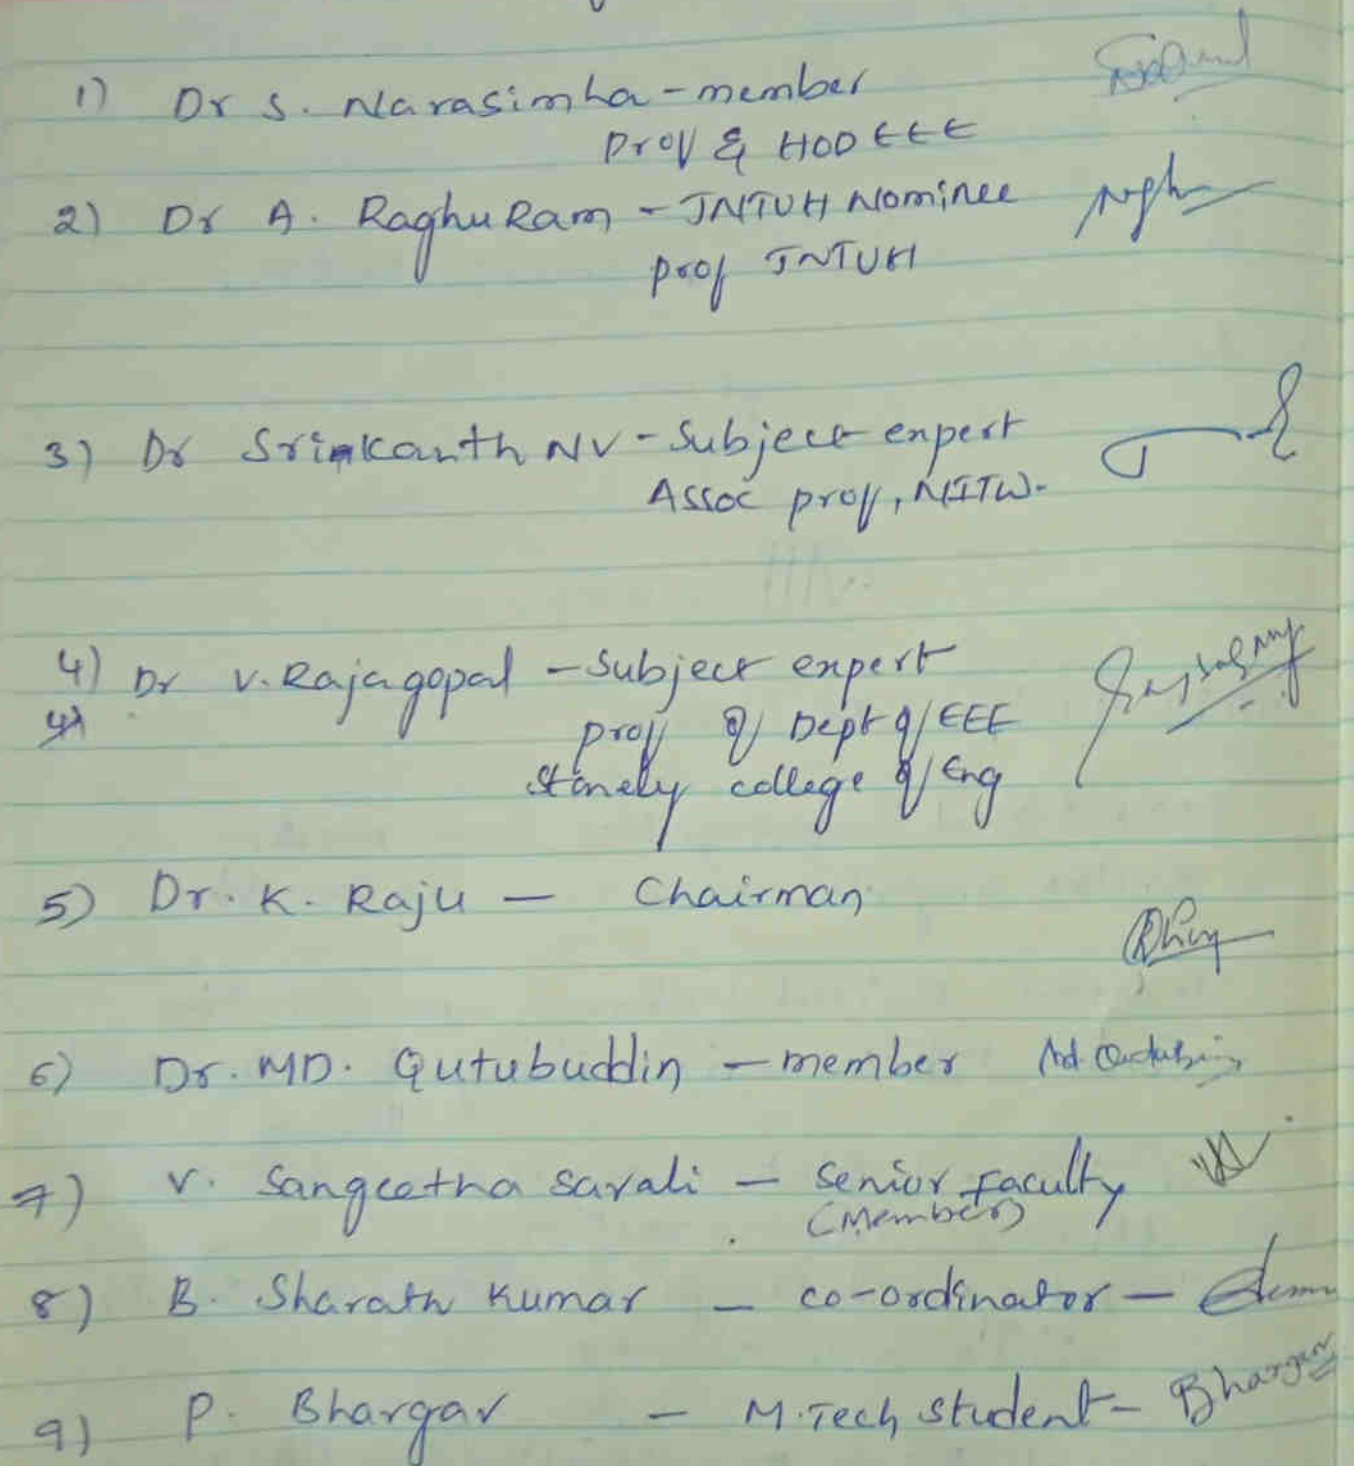 1) Dr S. Narasimha - member
Prof & HOD EEE
2) Dr A. Raghu Ram - JNTUH Nominee
prof JNTUH
3) Dr Srinkanth NV - Subject expert
Assoc prof, NITW.
4) Dr V. Rajagopal - Subject expert
prof of Dept of EEE
Stanely college of Eng
5) Dr. K. Raju - Chairman
6) Dr. MD. Qutubuddin - member
7) V. Sangeetha Savali - Senior faculty
(Member)
8) B. Sharath Kumar - co-ordinator -
9) P. Bhargav - M.Tech student - Bhargav